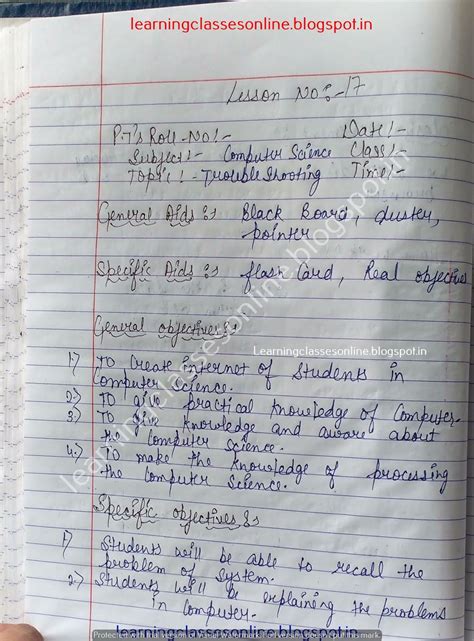 learningclassesonline.blogspot.in
Lesson No:-17
P.T's Roll-No!- Date!-
Subject:- Computer Science Class!-
Topic!- TroubleShooting Time!-
General Aids:- Black Board, duster,
pointer
Specific Aids:- flash Card, Real objectives
General objectives:-
Learningclassesonline.blogspot.in
1.) To Create internet of Students in
Computer Science.
2.) To give practical knowledge of Computer.
3.) To give knowledge and aware about
the Computer Science.
4.) To make the knowledge of processing
the Computer Science.
Specific objectives:-
1) Students will be able to recall the
problem of System.
2) Students will be explaining the problems
in Computer.
learningclassesonline.blogspot.in
learningclassesonline.blogspot.in